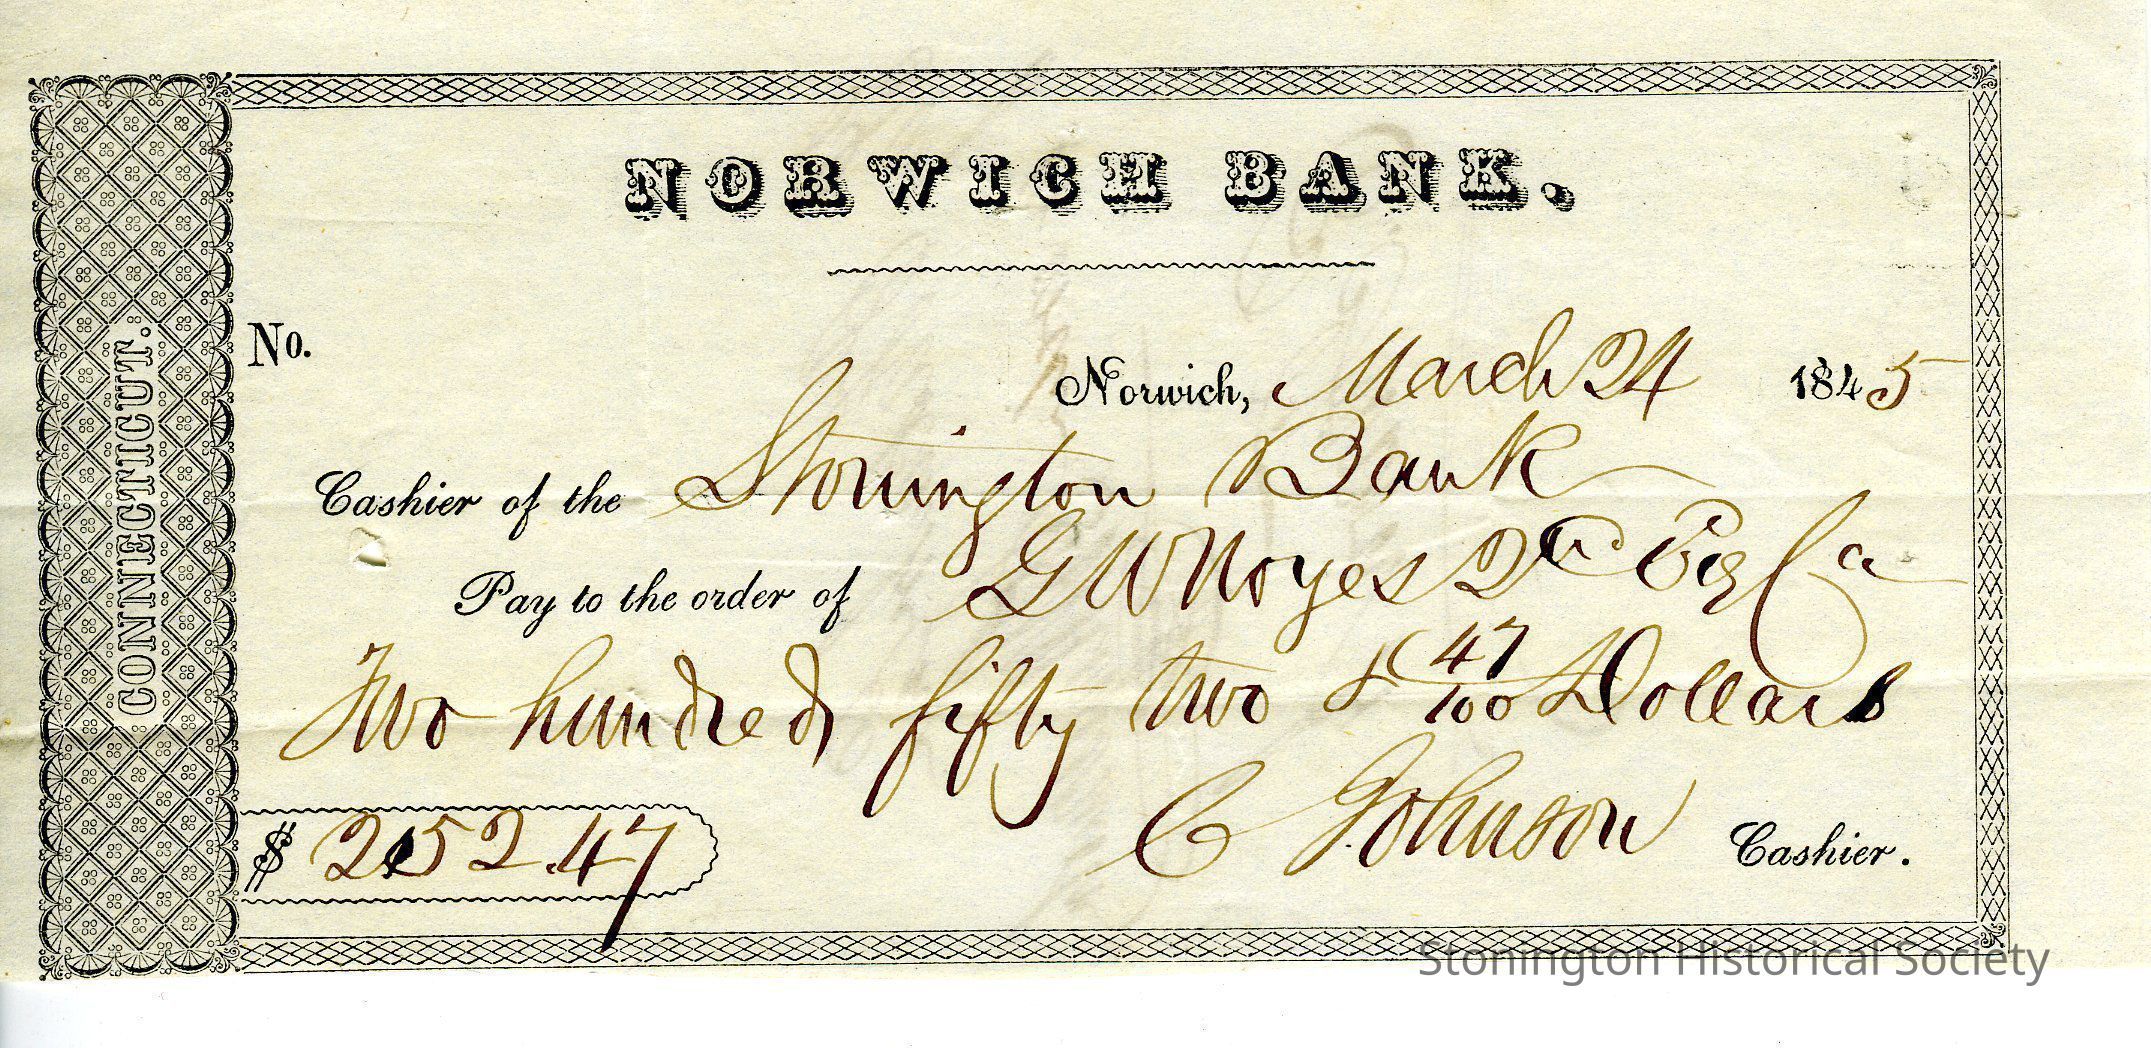 NORWICH BANK.
CONNECTICUT.
No.
Norwich, March 24 1845
Cashier of the Stonington Bank
Pay to the order of G W Noyes 2d Esq Ca
Two hundred fifty two & 47/100 Dollars
$ 252.47
C Johnson Cashier.
Stonington Historical Society